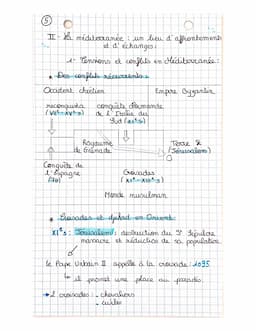 5
II - La méditerranée : un lieu d'affrontements
et d'échanges
1 - Tensions et conflits en Méditerranée :
• Des conflits récurrents :
Occident chrétien Empire Byzantin
reconquista conquête normande
de l'Italie du
Sud (XIe s)
Royaume
de Grenade
Terre S
(Jérusalem)
Conquête de
l'Espagne
Croisades
Monde musulman
• Croisades et djihad en Orient
XIe s : Jérusalem : destruction du St Sépulcre
massacre et réduction de sa population.
Le Pape Urbain II appelle à la croisade : 1095
il promet une place au paradis.
→ 2 croisades : - chevaliers
- civiles